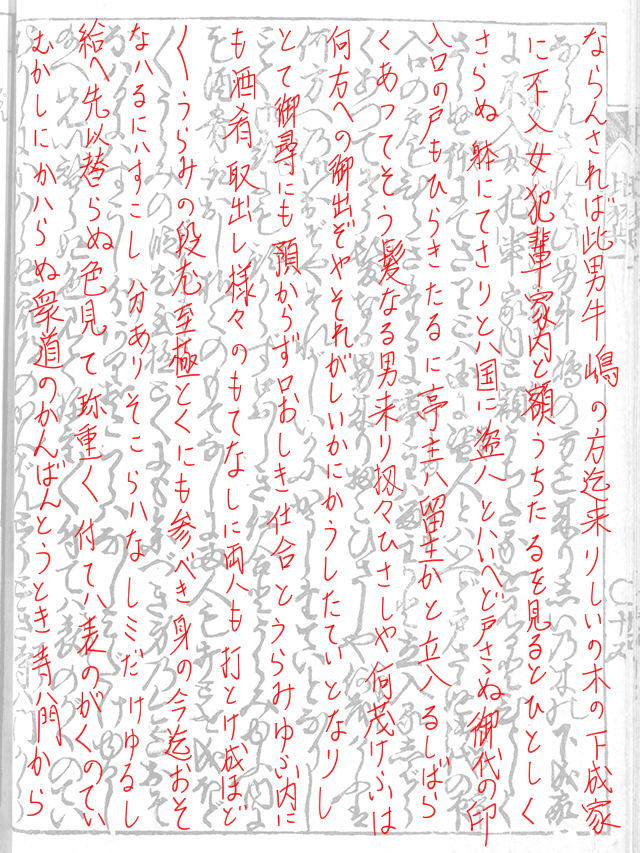 ならんされば此男牛嶋の方迄来りしいの木の下成家
に不入女犯輩家内と額うちたるを見るとひとしく
さらぬ躰にてさりとハ国に盗人とハいへど戸さゝぬ御代の印
入口の戸もひらきたるに亭主ハ留主かと立入るしばら
くあつてそう髪なる男来り扨々ひさしや何茂けふは
何方への御出ぞやそれがしいかにかうしたていとなりし
とて御尋にも預からず口おしき仕合とうらみゆふ内に
も酒肴取出し様々のもてなしに両人も打とけ成ほど
〱うらみの段尤至極とくにも参べき身の今迄おそ
なハるにハすこし分ありそこらハなしミだけゆるし
給へ先以替らぬ色見て珎重く付てハ表のがくのてい
むかしにかハらぬ衆道のかんばんとうとき寺ハ門から